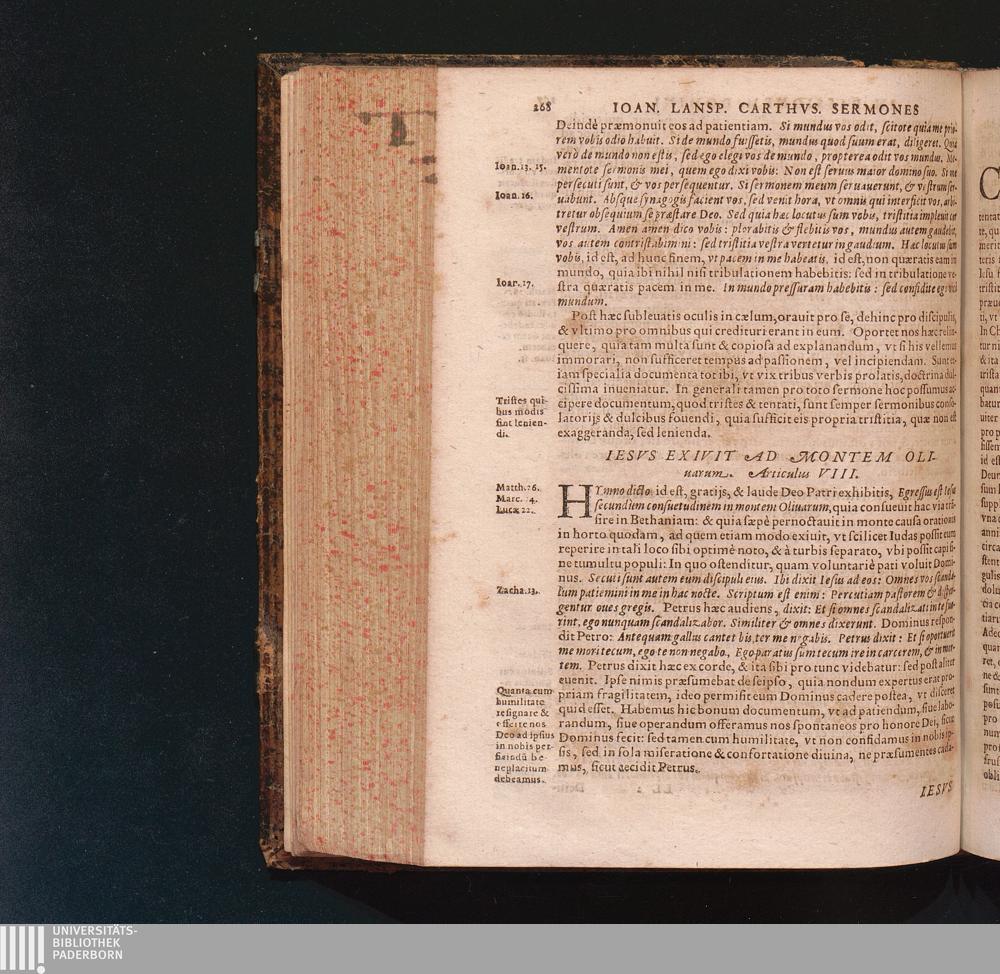 268 IOAN. LANSP. CARTHVS. SERMONES
Deindè præmonuit eos ad patientiam. Si mundus vos odit, scitote quia me prio-
rem vobis odio habuit. Si de mundo fuissetis, mundus quod suum erat, diligeret. Quia
verò de mundo non estis, sed ego elegi vos de mundo, propterea odit vos mundus. Me-
Ioan. 13. 15.
mentote sermonis mei, quem ego dixi vobis: Non est seruus maior domino suo. Si me
persecuti sunt, & vos persequentur. Si sermonem meum seruauerunt, & vestrum ser-
Ioan. 16.
uabunt. Absque synagogis facient vos, sed venit hora, vt omnis qui interficit vos, arbi-
tretur obsequium se præstare Deo. Sed quia hæc locutus sum vobis, tristitia impleuit cor
vestrum. Amen amen dico vobis: plorabitis & flebitis vos, mundus autem gaudebit,
vos autem contristabimini: sed tristitia vestra vertetur in gaudium. Hæc locutus sum
vobis, id est, ad hunc finem, vt pacem in me habeatis, id est, non quæratis eam in
mundo, quia ibi nihil nisi tribulationem habebitis: sed in tribulatione ve-
Ioan. 17.
stra quæratis pacem in me. In mundo pressuram habebitis: sed confidite ego vici
mundum.
Post hæc subleuatis oculis in cælum, orauit pro se, dehinc pro discipulis,
& vltimo pro omnibus qui credituri erant in eum. Oportet nos hæc relin-
quere, quia tam multa sunt & copiosa ad explanandum, vt si his vellemus
immorari, non sufficeret tempus ad passionem, vel incipiendam. Sunt et-
iam specialia documenta tot ibi, vt vix tribus verbis prolatis, doctrina dul-
cissima inueniatur. In generali tamen pro toto sermone hoc possumus ac-
Tristes qui-
bus modis
sint lenien-
di.
cipere documentum, quod tristes & tentati, sunt semper sermonibus conso-
latorijs & dulcibus fouendi, quia sufficit eis propria tristitia, quæ non est
exaggeranda, sed lenienda.
IESVS EXIVIT AD MONTEM OLI-
uarum. Articulus VIII.
Matth. 26.
Marc. 14.
Lucæ 22.
HYmno dicto, id est, gratijs, & laude Deo Patri exhibitis, Egressus est Iesus
secundum consuetudinem in montem Oliuarum, quia consueuit hac via tran-
sire in Bethaniam: & quia sæpè pernoctauit in monte causa orationis
in horto quodam, ad quem etiam modo exiuit, vt scilicet Iudas possit eum
reperire in tali loco sibi optimè noto, & à turbis separato, vbi possit capi si-
ne tumultu populi: In quo ostenditur, quam voluntariè pati voluit Domi-
nus. Secuti sunt autem eum discipuli eius. Ibi dixit Iesus ad eos: Omnes vos scanda-
Zacha. 13.
lum patiemini in me in hac nocte. Scriptum est enim: Percutiam pastorem & disper-
gentur oues gregis. Petrus hæc audiens, dixit: Et si omnes scandalizati in te fue-
rint, ego nunquam scandalizabor. Similiter & omnes dixerunt. Dominus respon-
dit Petro: Antequam gallus cantet bis, ter me negabis. Petrus dixit: Et si oportuerit
me mori tecum, ego te non negabo, Ego paratus sum tecum ire in carcerem, & in mor-
tem. Petrus dixit hæc ex corde, & ita sibi pro tunc videbatur: sed post aliter
euenit. Ipse nimis præsumebat de seipso, quia nondum expertus erat pro-
Quanta cum
humilitate
resignare &
offerre nos
Deo ad ipsius
in nobis per-
ficiendū be-
neplacitum
debeamus.
priam fragilitatem, ideo permisit eum Dominus cadere postea, vt disceret
quid esset. Habemus hic bonum documentum, vt ad patiendum, siue labo-
randum, siue operandum offeramus nos spontaneos pro honore Dei, sicut
Dominus fecit: sed tamen cum humilitate, vt non confidamus in nobis ip-
sis, sed in sola miseratione & confortatione diuina, ne præsumentes cada-
mus, sicut accidit Petrus.
IESVS
UNIVERSITÄTS-
BIBLIOTHEK
PADERBORN